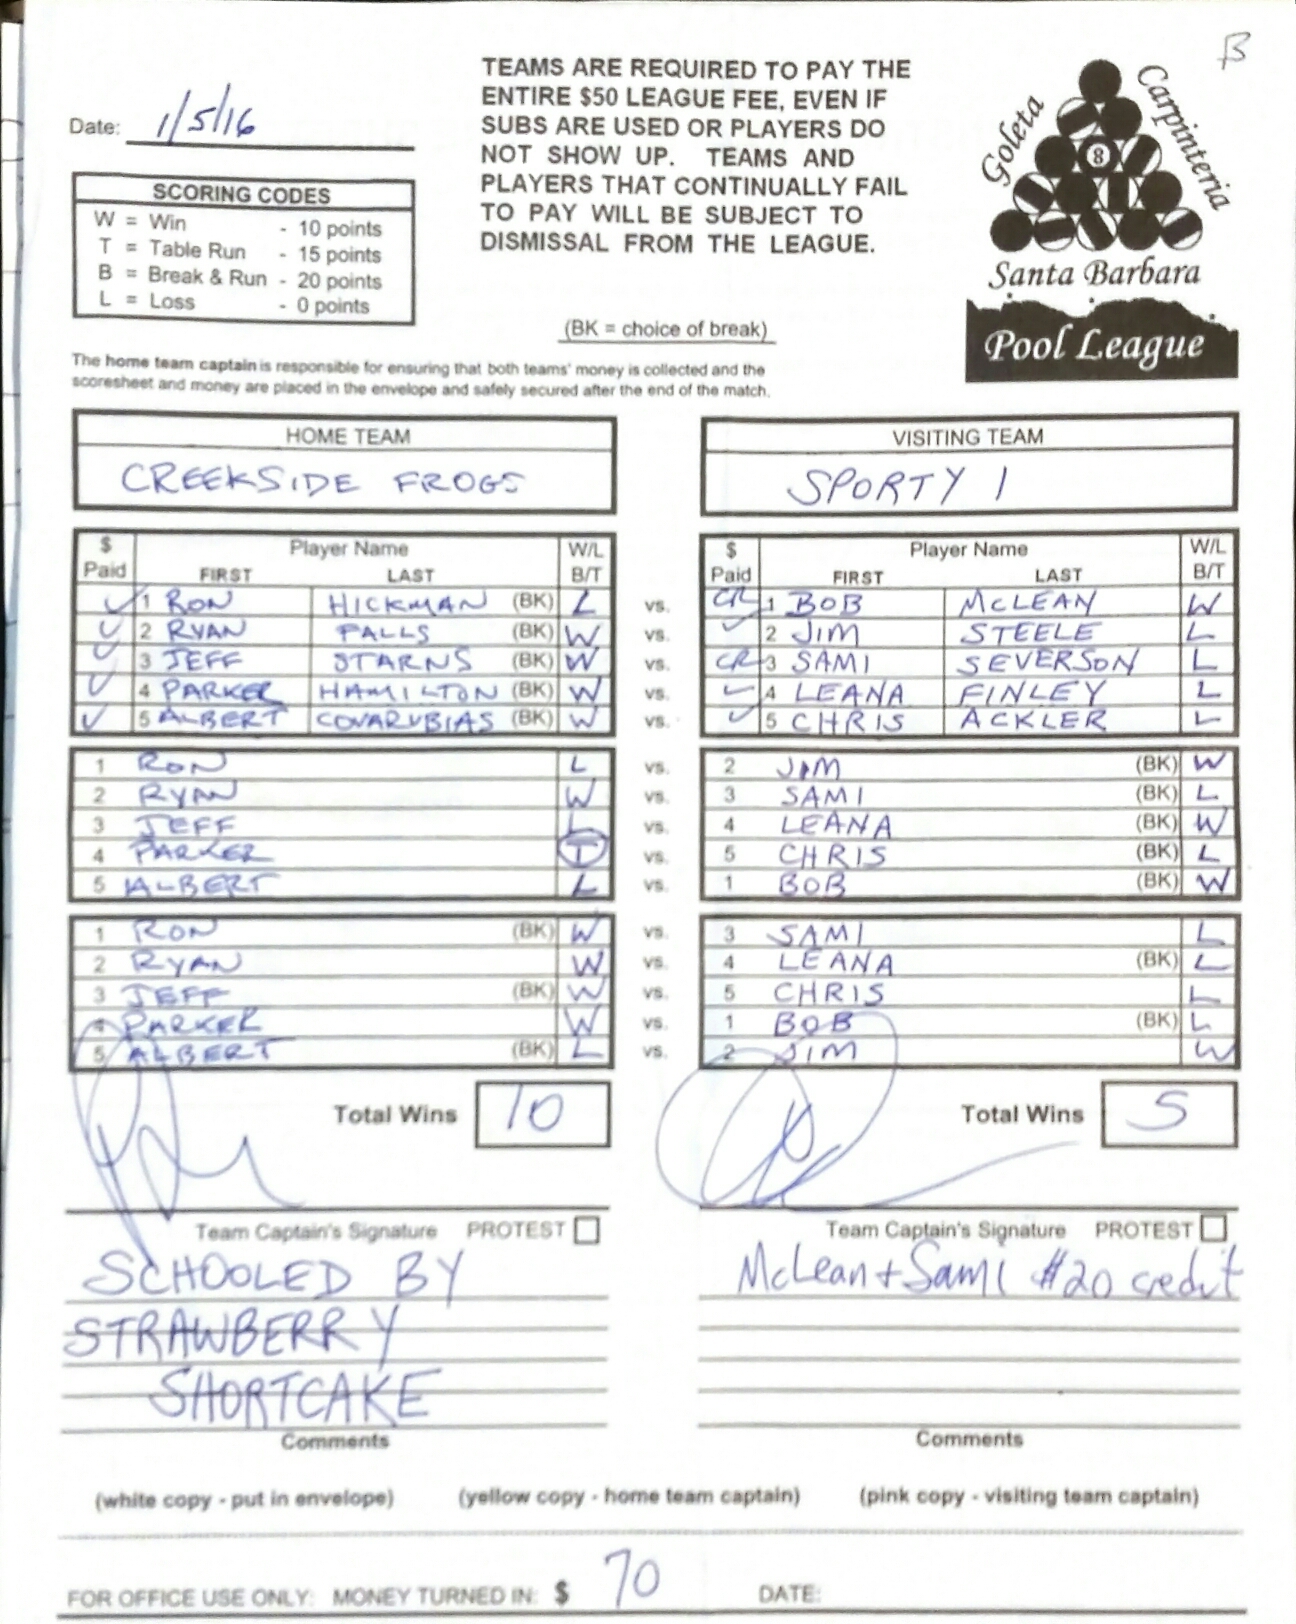 B
Date: 1/5/16
TEAMS ARE REQUIRED TO PAY THE
ENTIRE $50 LEAGUE FEE, EVEN IF
SUBS ARE USED OR PLAYERS DO
NOT SHOW UP. TEAMS AND
PLAYERS THAT CONTINUALLY FAIL
TO PAY WILL BE SUBJECT TO
DISMISSAL FROM THE LEAGUE.
Goleta
Carpinteria
8
Santa Barbara
Pool League
SCORING CODES
W = Win - 10 points
T = Table Run - 15 points
B = Break & Run - 20 points
L = Loss - 0 points
(BK = choice of break)
The home team captain is responsible for ensuring that both teams' money is collected and the
scoresheet and money are placed in the envelope and safely secured after the end of the match.
HOME TEAM VISITING TEAM
CREEKSIDE FROGS SPORTY 1
$ Player Name W/L $ Player Name W/L
Paid FIRST LAST B/T Paid FIRST LAST B/T
✓ 1 RON HICKMAN (BK) L vs. CR 1 BOB McLEAN W
✓ 2 RYAN FALLS (BK) W vs. ✓ 2 JIM STEELE L
✓ 3 JEFF STARNS (BK) W vs. CR 3 SAMI SEVERSON L
✓ 4 PARKER HAMILTON (BK) W vs. ✓ 4 LEANA FINLEY L
✓ 5 ALBERT COVARUBIAS (BK) W vs. ✓ 5 CHRIS ACKLER L
1 RON L vs. 2 JIM (BK) W
2 RYAN W vs. 3 SAMI (BK) L
3 JEFF L vs. 4 LEANA (BK) W
4 PARKER T vs. 5 CHRIS (BK) L
5 ALBERT L vs. 1 BOB (BK) W
1 RON (BK) W vs. 3 SAMI L
2 RYAN W vs. 4 LEANA (BK) L
3 JEFF (BK) W vs. 5 CHRIS L
4 PARKER W vs. 1 BOB (BK) L
5 ALBERT (BK) L vs. 2 JIM W
Total Wins 10 Total Wins 5
Team Captain's Signature PROTEST Team Captain's Signature PROTEST
SCHOOLED BY McLean + Sami #20 credit
STRAWBERRY
SHORTCAKE
Comments Comments
(white copy - put in envelope) (yellow copy - home team captain) (pink copy - visiting team captain)
FOR OFFICE USE ONLY: MONEY TURNED IN: $ 70 DATE: